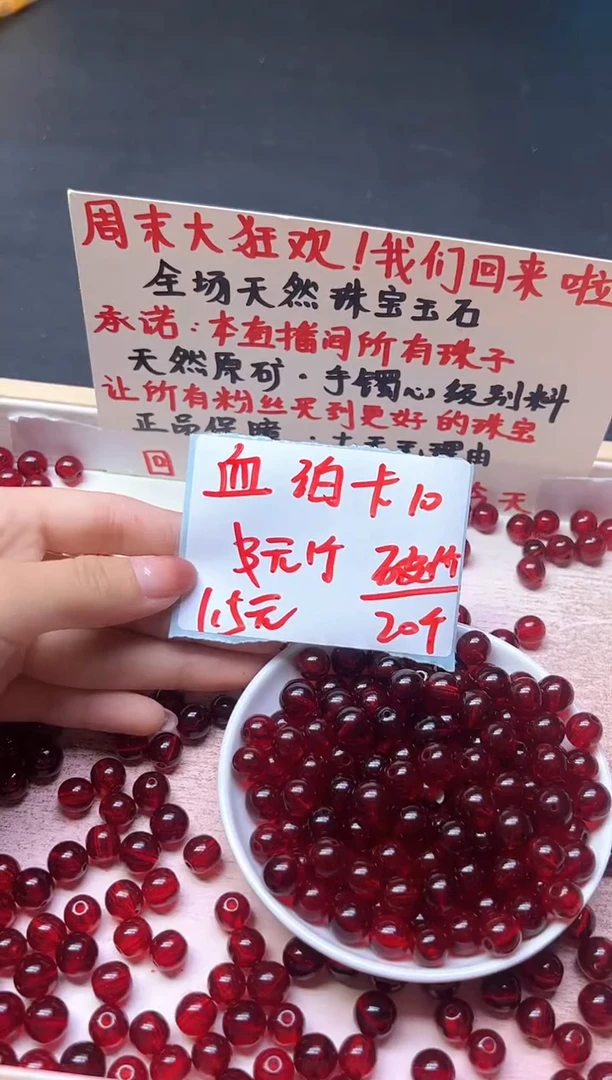 周末大狂欢！我们回来啦
全场天然珠宝玉石
承诺：本直播间所有珠子
天然原矿·手镯心级别料
让所有粉丝买到更好的珠宝
正品保障
理由
回
天
血珀卡10
元/个 破价
1.5元 20个